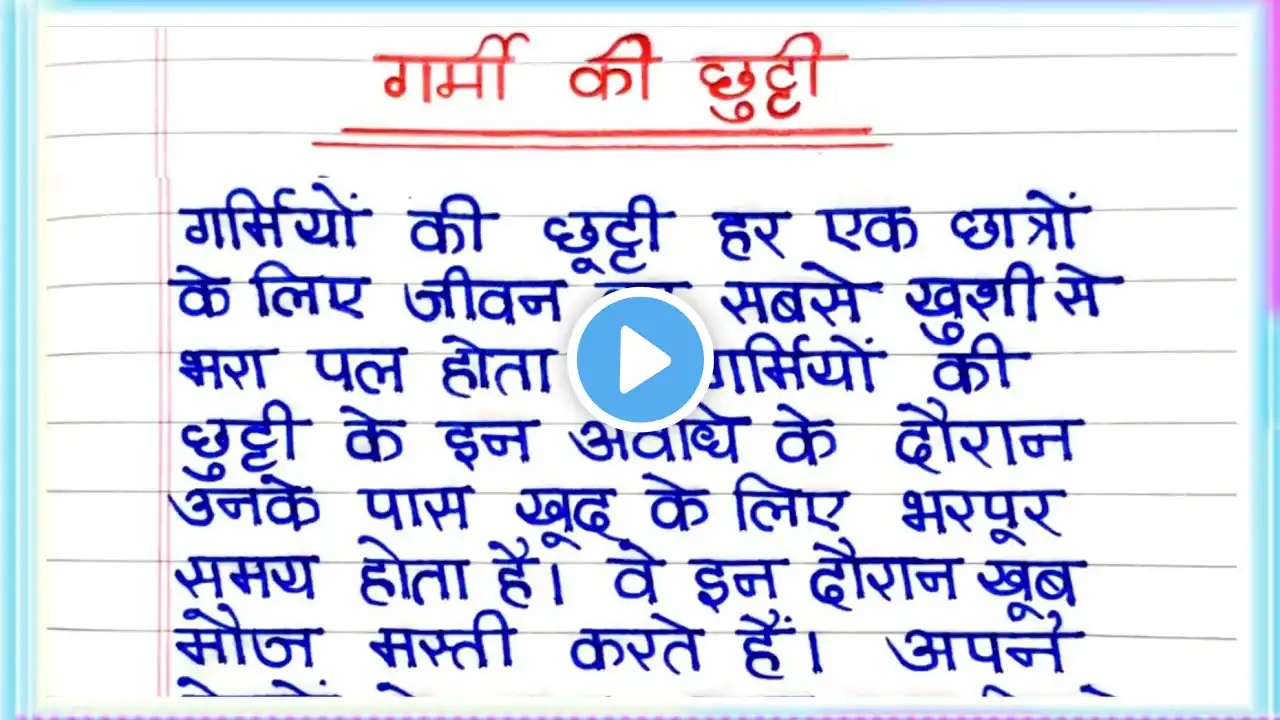 गर्मी की छुट्टी
गर्मियों की छूट्टी हर एक छात्रों
के लिए जीवन सबसे खुशी से
भरा पल होता गर्मियों की
छुट्टी के इन अवधि के दौरान
उनके पास खूद के लिए भरपूर
समय होता है। वे इन दौरान खूब
मौज मस्ती करते हैं। अपने